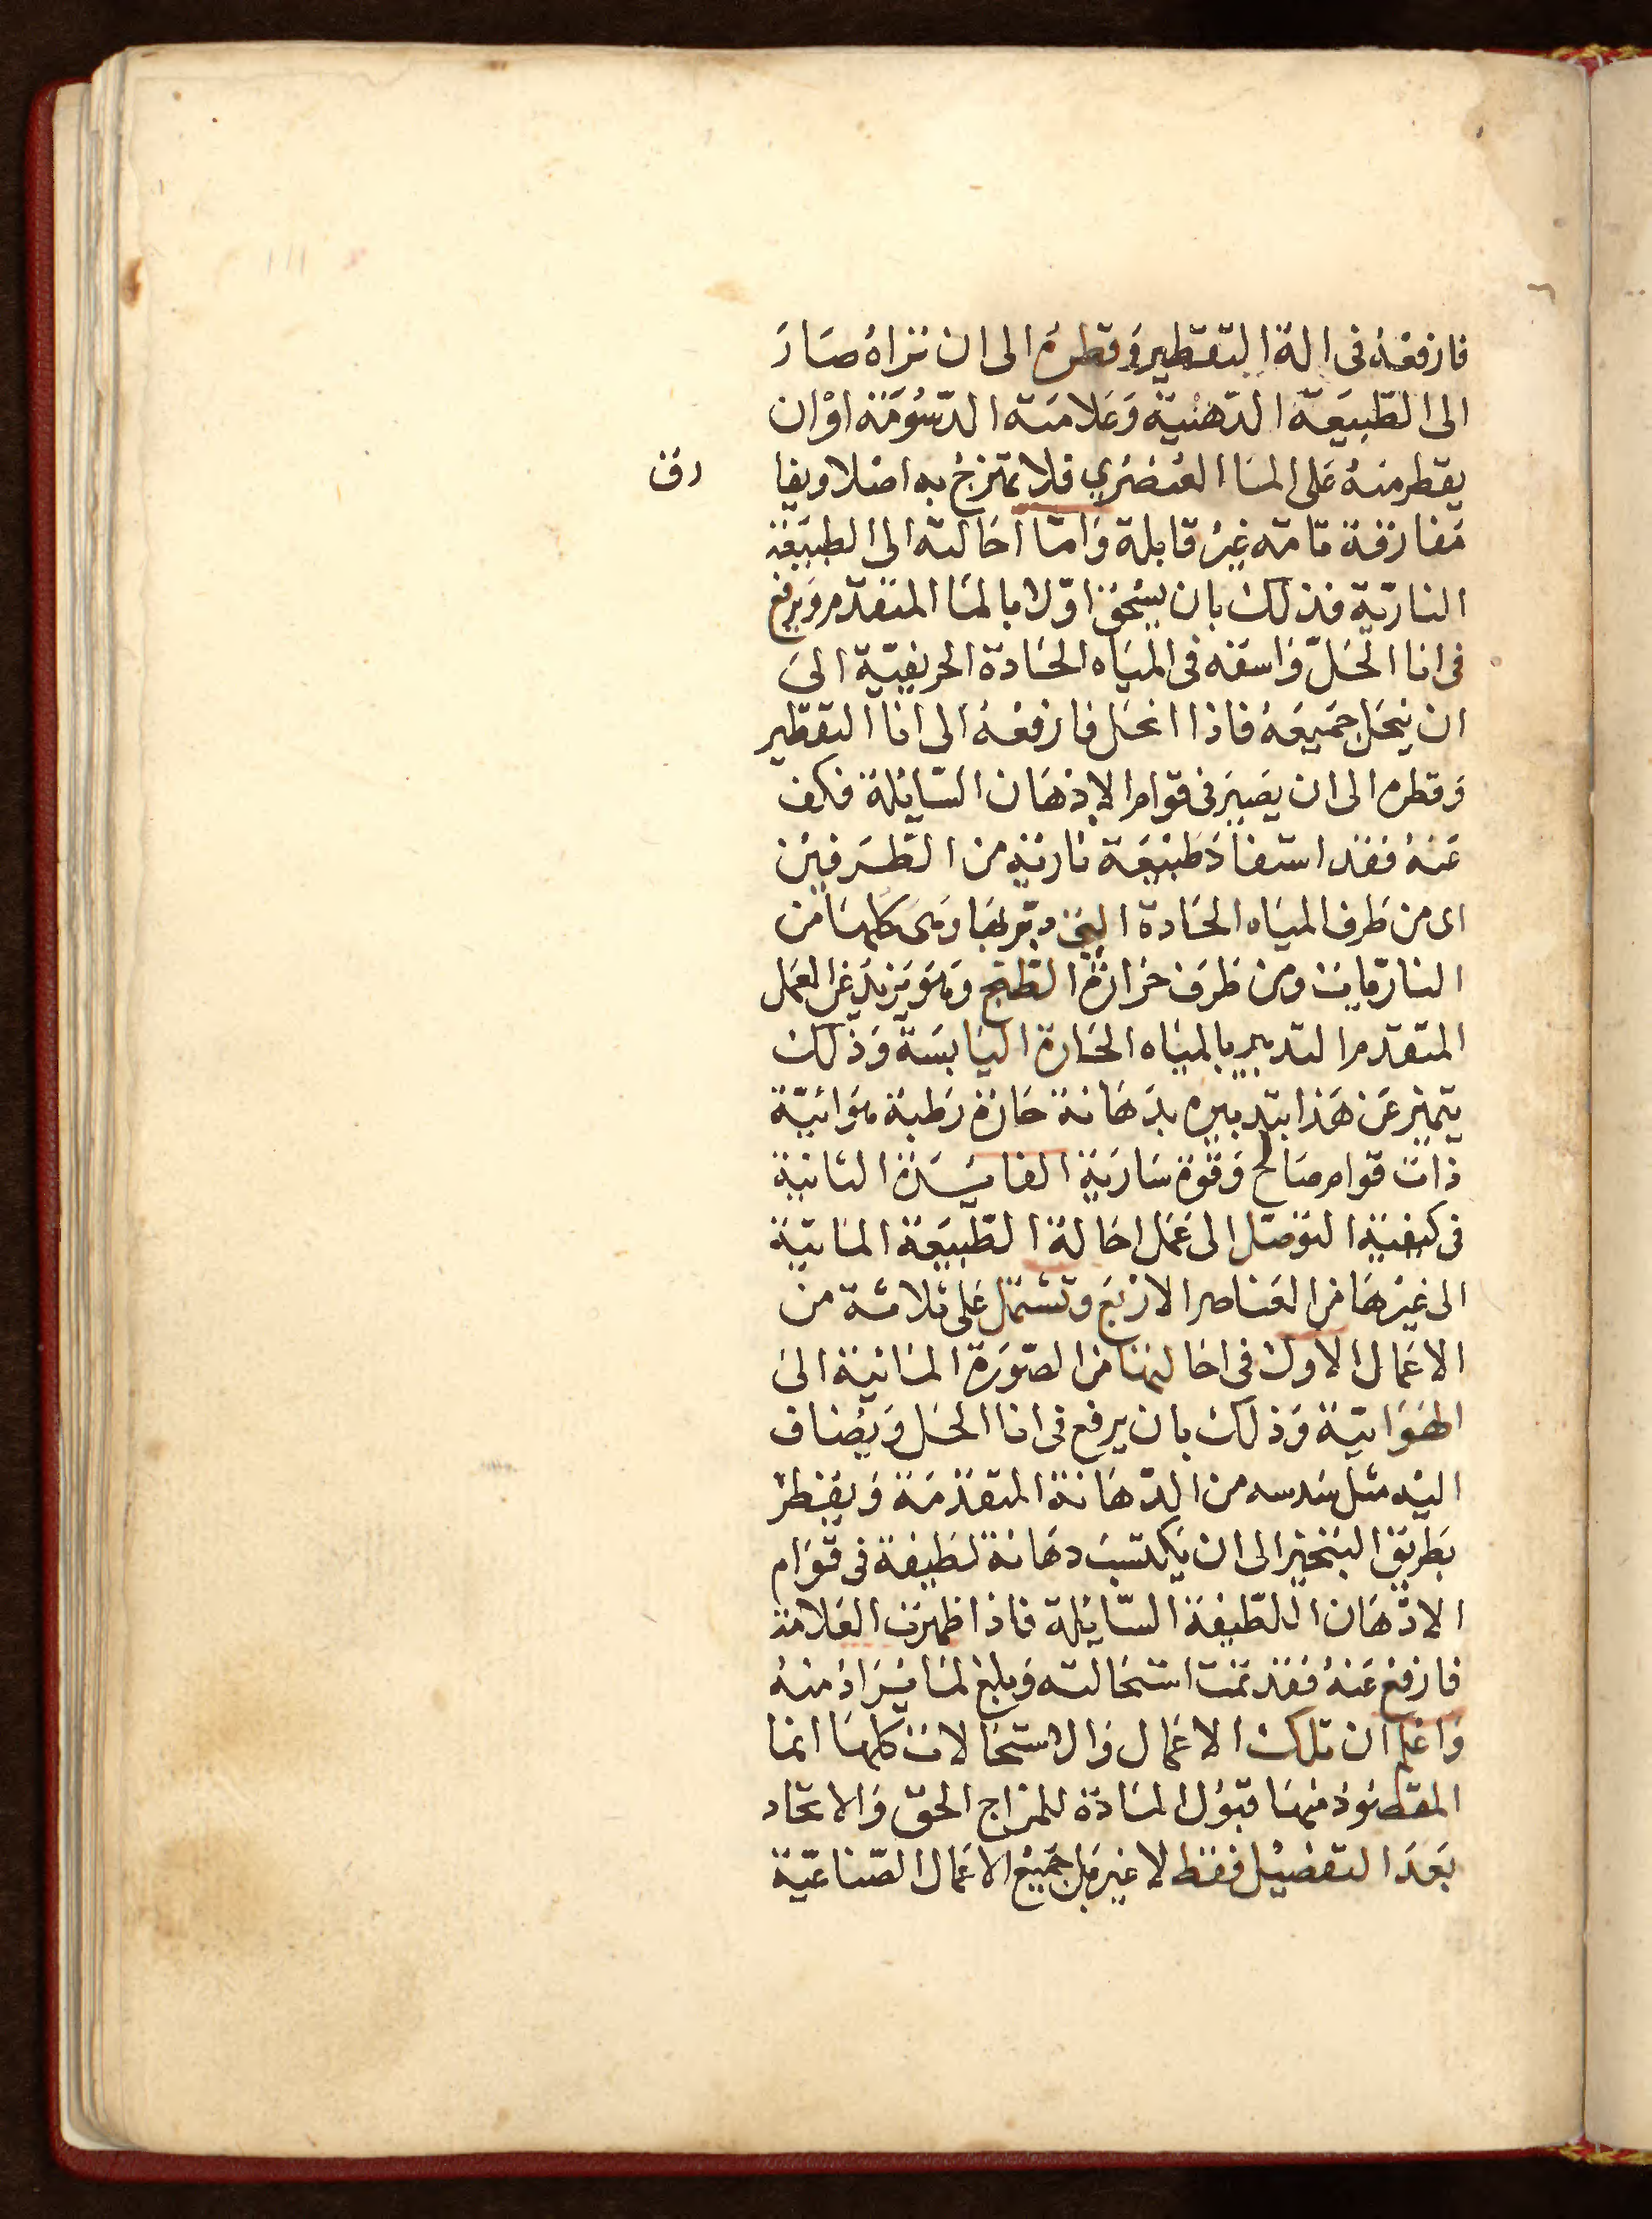 فارفعه فى الة التقطير وقطره الى ان تراه صار
الى الطبيعة الدهنية وعلامته الدسومة او ان
يقطر منه على الماء العنصري فلا يمتزج به اصلا ويفا
رق
مفارقة تامة غير قابلة واما احالته الى الطبيعة
النارية فذلك بان يسحق اولا بالماء المتقدم ويرفع
فى انا الحل واسقه فى المياه الحادة الحريفية الى
ان ينحل جميعه فاذا انحل فارفعه الى انا التقطير
وقطره الى ان يصير فى قوام الادهان السايلة فكف
عنه فقد استفاد طبيعة نارية من الطرفين
اى من طرف المياه الحادة التى دبر بها وهى كلها من
الناريات ومن طرف حرارة الطبخ وهو يزيد عن العمل
المتقدم التدبير بالمياه الحارة اليابسة وذلك
يتميز عن هذا بتدبيره بدهانة حارة رطبة هوائية
ذات قوام صالح وقوة سارية الفايدة الثانية
فى كيفية التوصل الى عمل احالة الطبيعة المائية
الى غيرها من العناصر الاربع وتشتمل على ثلاثة من
الاعمال الاول فى احالتها من الصورة المائية الى
الهوائية وذلك بان يرفع فى انا الحل ويضاف
اليه مثل سدسه من الدهانة المتقدمة ويقطر
بطريق التبخير الى ان يكتسب دهانة لطيفة فى قوام
الادهان اللطيفة السايلة فاذا ظهرت العلامة
فارفع عنه فقد تمت استحالته وبلغ لما يراد منه
واعلم ان تلك الاعمال والاستحالات كلها انما
المقصود منها قبول المادة للمزاج الحق والاتحاد
بعد التفصيل فقط لا غير بل جميع الاعمال الصناعية